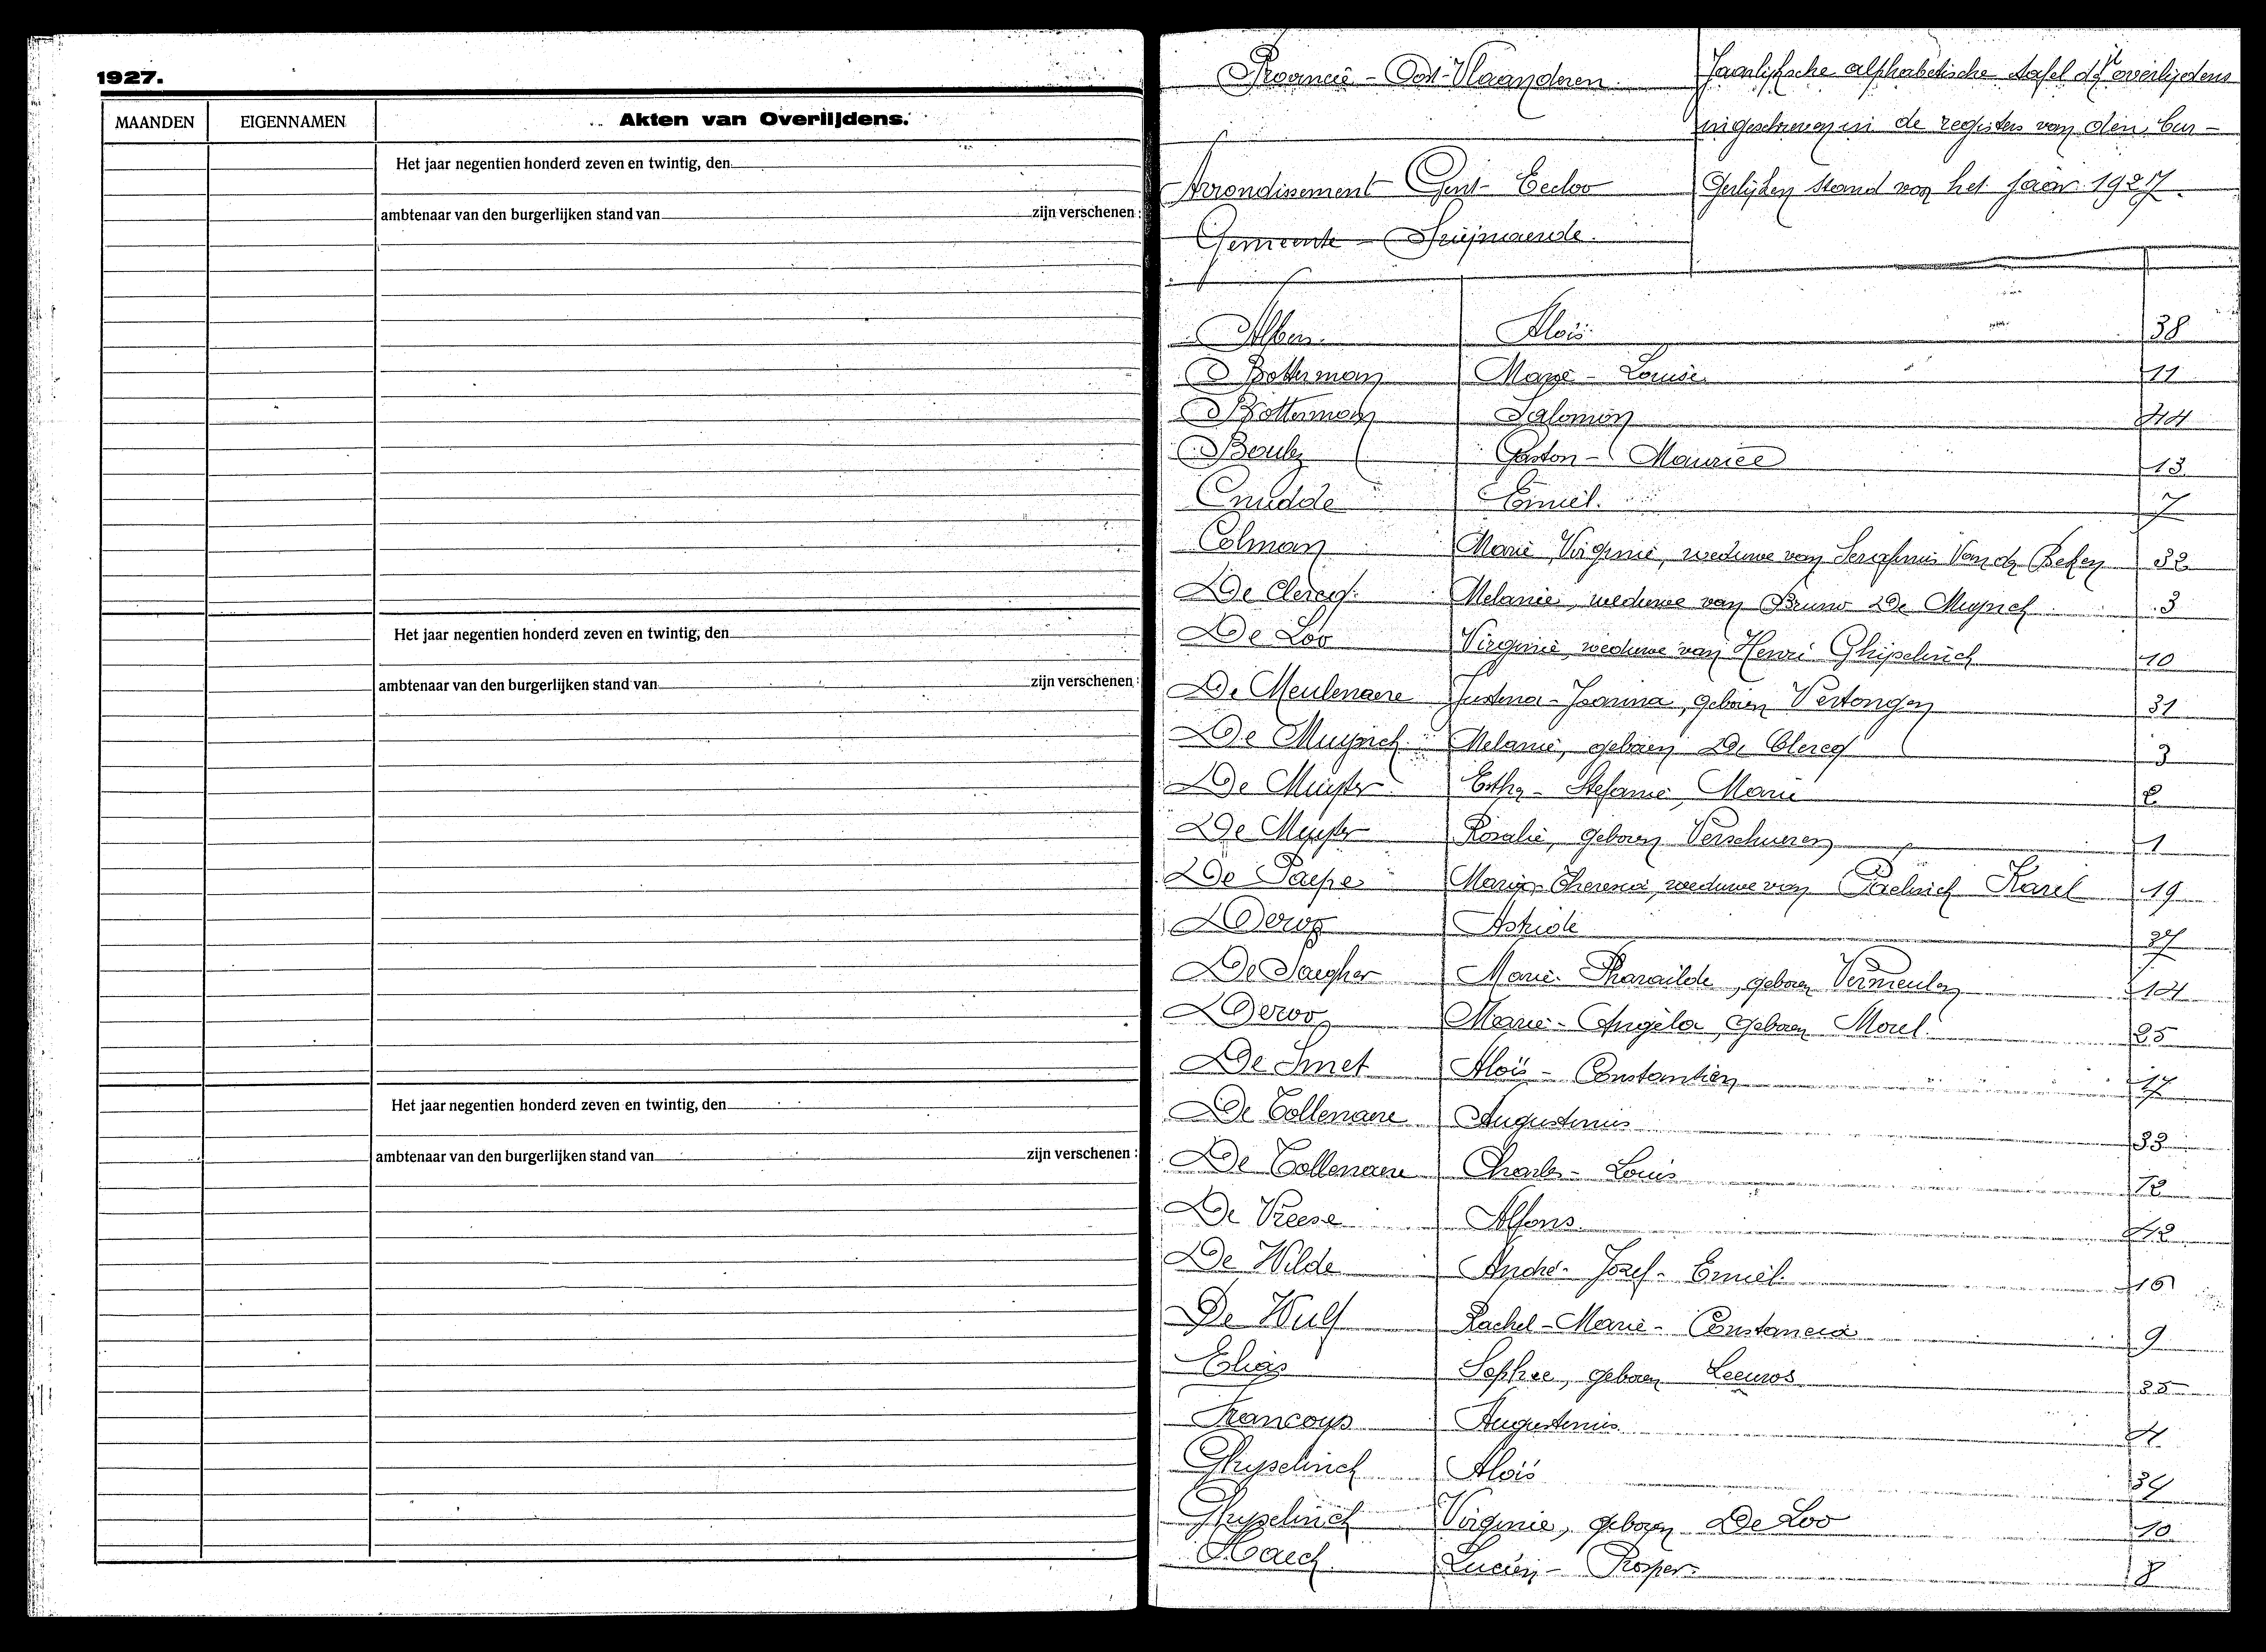 1927.
MAANDEN EIGENNAMEN Akten van Overlijdens.
Het jaar negentien honderd zeven en twintig, den
ambtenaar van den burgerlijken stand van zijn verschenen :
Het jaar negentien honderd zeven en twintig, den
ambtenaar van den burgerlijken stand van zijn verschenen :
Het jaar negentien honderd zeven en twintig, den
ambtenaar van den burgerlijken stand van zijn verschenen :
Provincie - Oost-Vlaanderen.
Arrondissement Gent-Eecloo
Gemeente -
Jaarlijksche alphabetische tafel der overlijdens
ingeschreven in de registers van den bur-
gerlijken stand van het jaar 1927.
Aloïs 38
Botterman Marie - Louise 11
Botterman Salomon 44
Gaston - Maurice 13
Cnudde Emiel. 7
Colman Marie Virginie, weduwe van Serafinus Van der Beken 32
De Clercq Melanie, weduwe van Bruno De Muynck 3
De Loo Virginie weduwe van Henri Ghijselinck 10
De Meulenaere Justina-Joanna, geboren Vertongen 31
De Muynck Melanie, geboren De Clercq 3
De Muijter Esther - Stefanie Marie 2
De Muyter Rosalie, geboren Verschueren 1
De Paepe Maria-Theresia, weduwe van Karel 19
Deroo Astride 37
De Saegher Marie-Pharaïlde, geboren Vermeulen 14
Deroo Marie-Angéla, geboren Morel 25
De Smet Aloïs - Constantien 17
De Collenaere Augustinus 33
De Collenaere Charles - Louis 12
De Vreese Alfons 42
De Wilde André - Jozef - Emiel. 16
De Wulf Rachel - Marie - Constancia 9
Elias Sophie, geboren 35
Francoys Augustinus 4
Ghyselinck Aloïs
Ghyselinck Virginie, geboren De Loo 10
Haeck Lucien - Prosper. 8